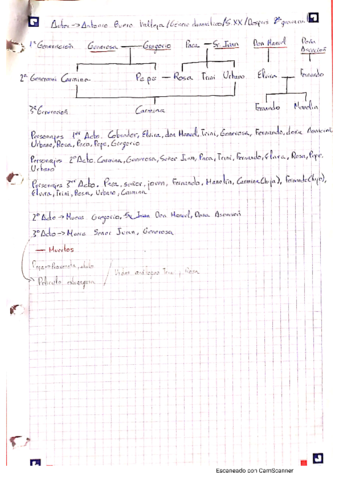 Autor → Antonio Buero Vallejo / Género dramático / S.XX / Después 2ª guerra
1ª Generación Generosa Gregorio Paca Sr. Juan Don Manuel Doña Asunción
2ª Generación Carmina Pepe Rosa Trini Urbano Elvira Fernando
3ª Generación Carmina Fernando Manolín
Personajes 1er Acto. Cobrador, Elvira, don Manuel, Trini, Generosa, Fernando, doña Asunción,
Urbano, Rosa, Paca, Pepe, Gregorio
Personajes 2º Acto. Carmina, Generosa, Señor Juan, Paca, Trini, Fernando, Elvira, Rosa, Pepe,
Urbano
Personajes 3er Acto. Paca, señor, joven, Fernando, Manolín, Carmina (hija), Fernando (hijo),
Elvira, Trini, Rosa, Urbano, Carmina
2º Acto → Muere Gregorio, Sr. Juan Don Manuel, Dona Asunción
3º Acto → Muere Señor Juan, Generosa
— Muertes
Escaneado con CamScanner